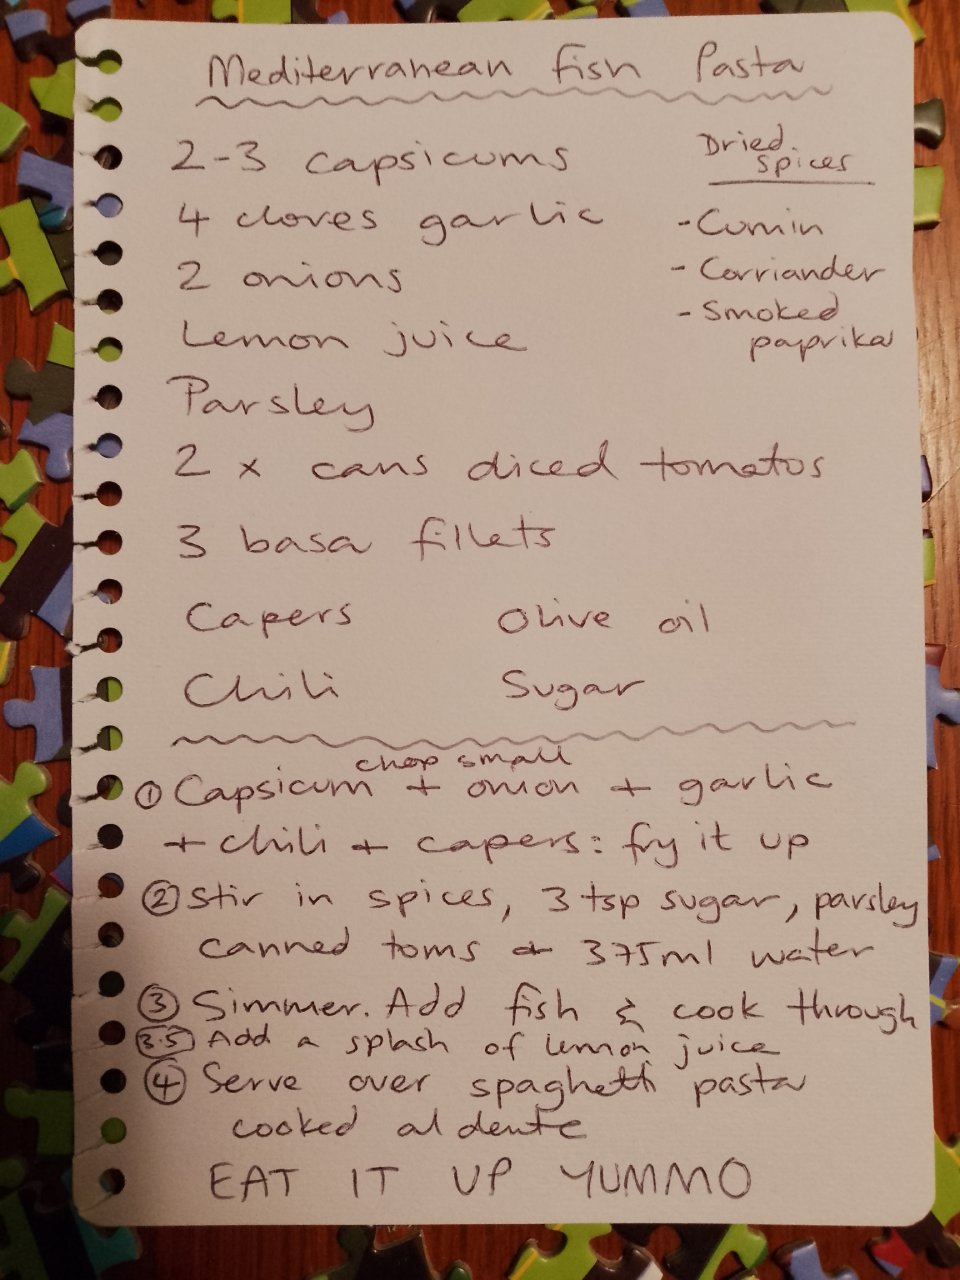 Mediterranean Fish Pasta
2-3 capsicums
4 cloves garlic
2 onions
Lemon juice
Parsley
2 x cans diced tomatos
3 basa fillets
Capers Olive oil
Chili Sugar
Dried spices
- Cumin
- Corriander
- Smoked
paprika
chop small
① Capsicum + onion + garlic
+ chili + capers: fry it up
② Stir in spices, 3 tsp sugar, parsley
canned toms + 375ml water
③ Simmer. Add fish & cook through
3.5 Add a splash of lemon juice
④ Serve over spaghetti pasta
cooked al dente
EAT IT UP YUMMO